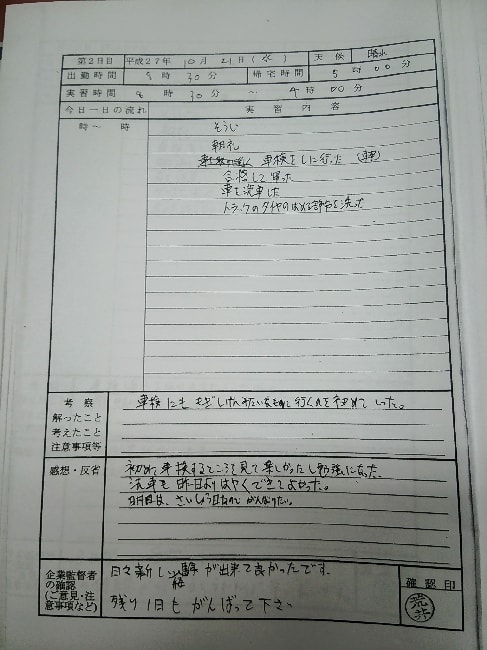 第2日目 平成27年 10月 21日(水) 天候 晴れ
出勤時間 8時30分 帰宅時間 5時00分
実習時間 8時30分 ~ 4時00分
今日一日の流れ 実習内容
時~ 時
そうじ
朝礼
車検をしに行った
合格して戻った
車を洗車した
トラックのタイヤの を洗った
考察
解ったこと
考えたこと
注意事項等
車検にも に行くのを初めてしった。
感想・反省
初めて車検するところを見て楽しかったし勉強になった。
洗車も昨日よりはやくできてよかった。
明日は、さいしゅう日なので がんばりたい。
企業監督者
の確認
(ご意見・注
意事項など)
日々新しい経験が出来て良かったです。
残り1日もがんばって下さい
確認印
荒井